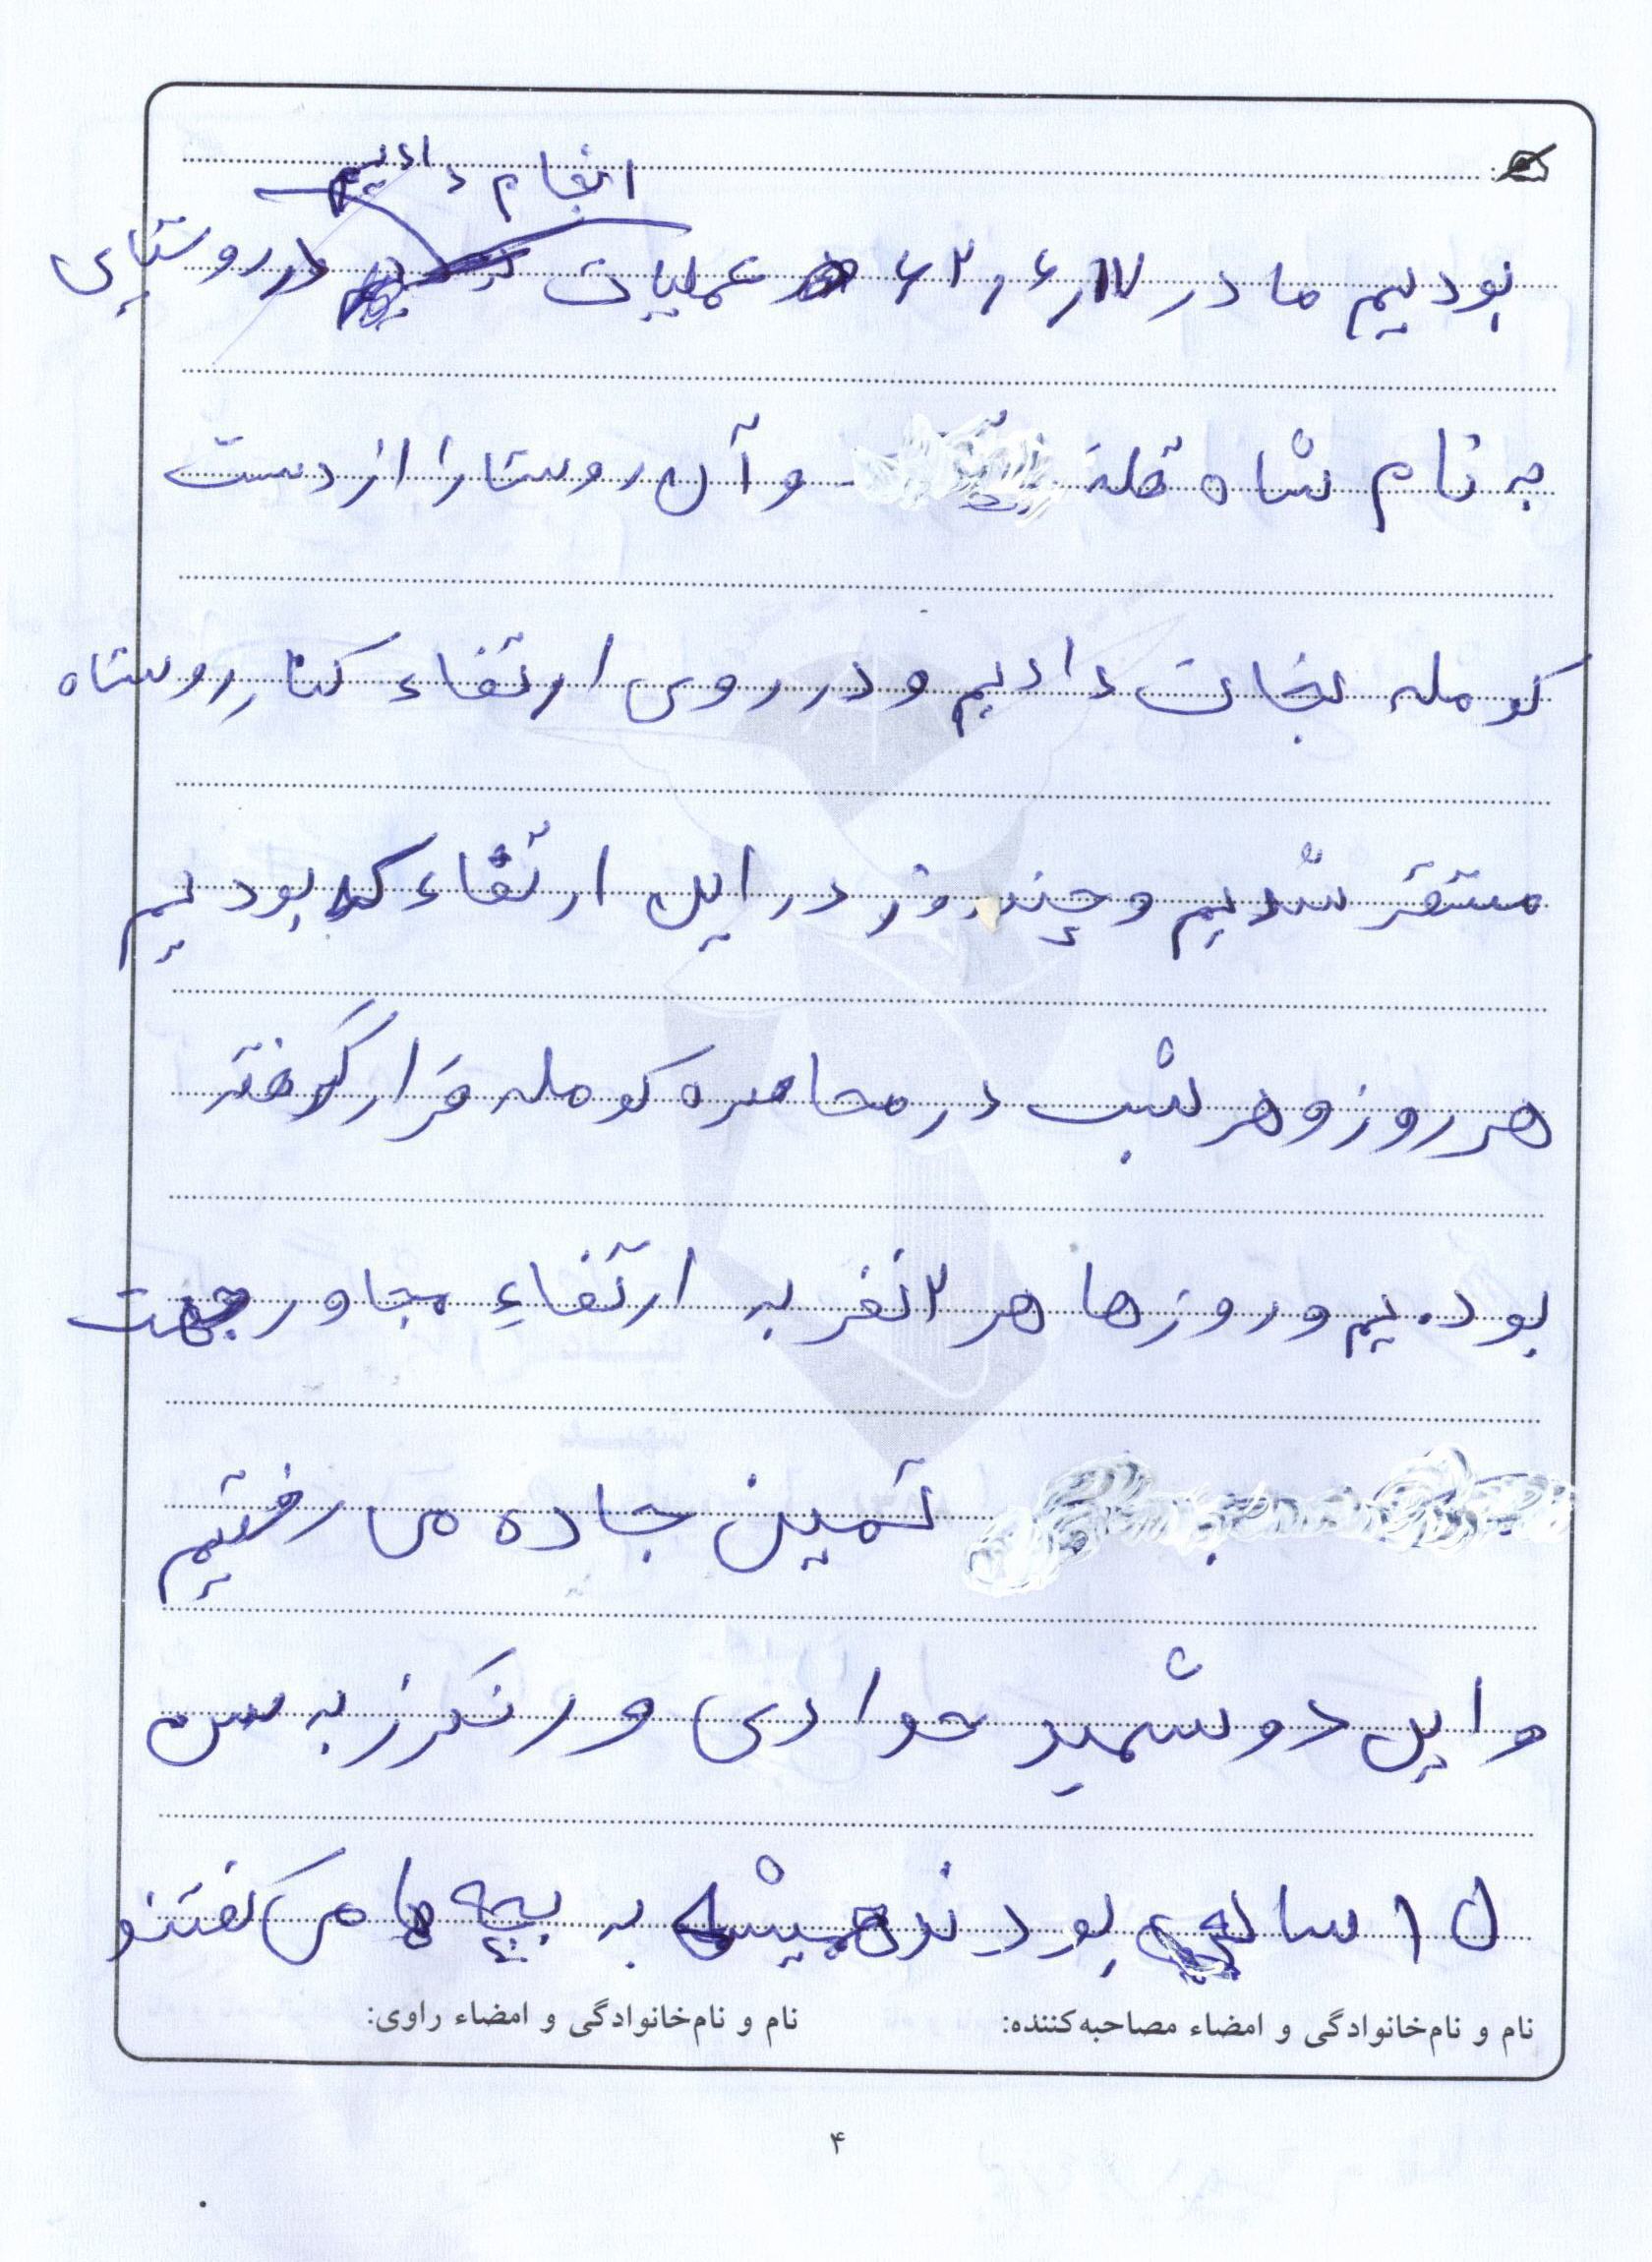 انجام دادیم
بودیم ما در ۶۲٫۶٫۱۷ عملیات در روستایی
به نام شاه قلعه و آن روستا را از دست
کومله نجات دادیم و در روی ارتفاء کنار روستاه
متقر شدیم و چند روز در این ارتفاء که بودیم
هر روز و هر شب در محاصره کومله قرار گرفته
بودیم و روزها هر ۲ نفر به ارتفاءِ مجاور جهت
تمین جاده می رفتیم
و این دو شهید جوادی و رنگرز به سن
۱۵ ساله بودند همیشه به بچه ها می گفتند
نام و نام‌خانوادگی و امضاء مصاحبه‌کننده: نام و نام‌خانوادگی و امضاء راوی:
۴